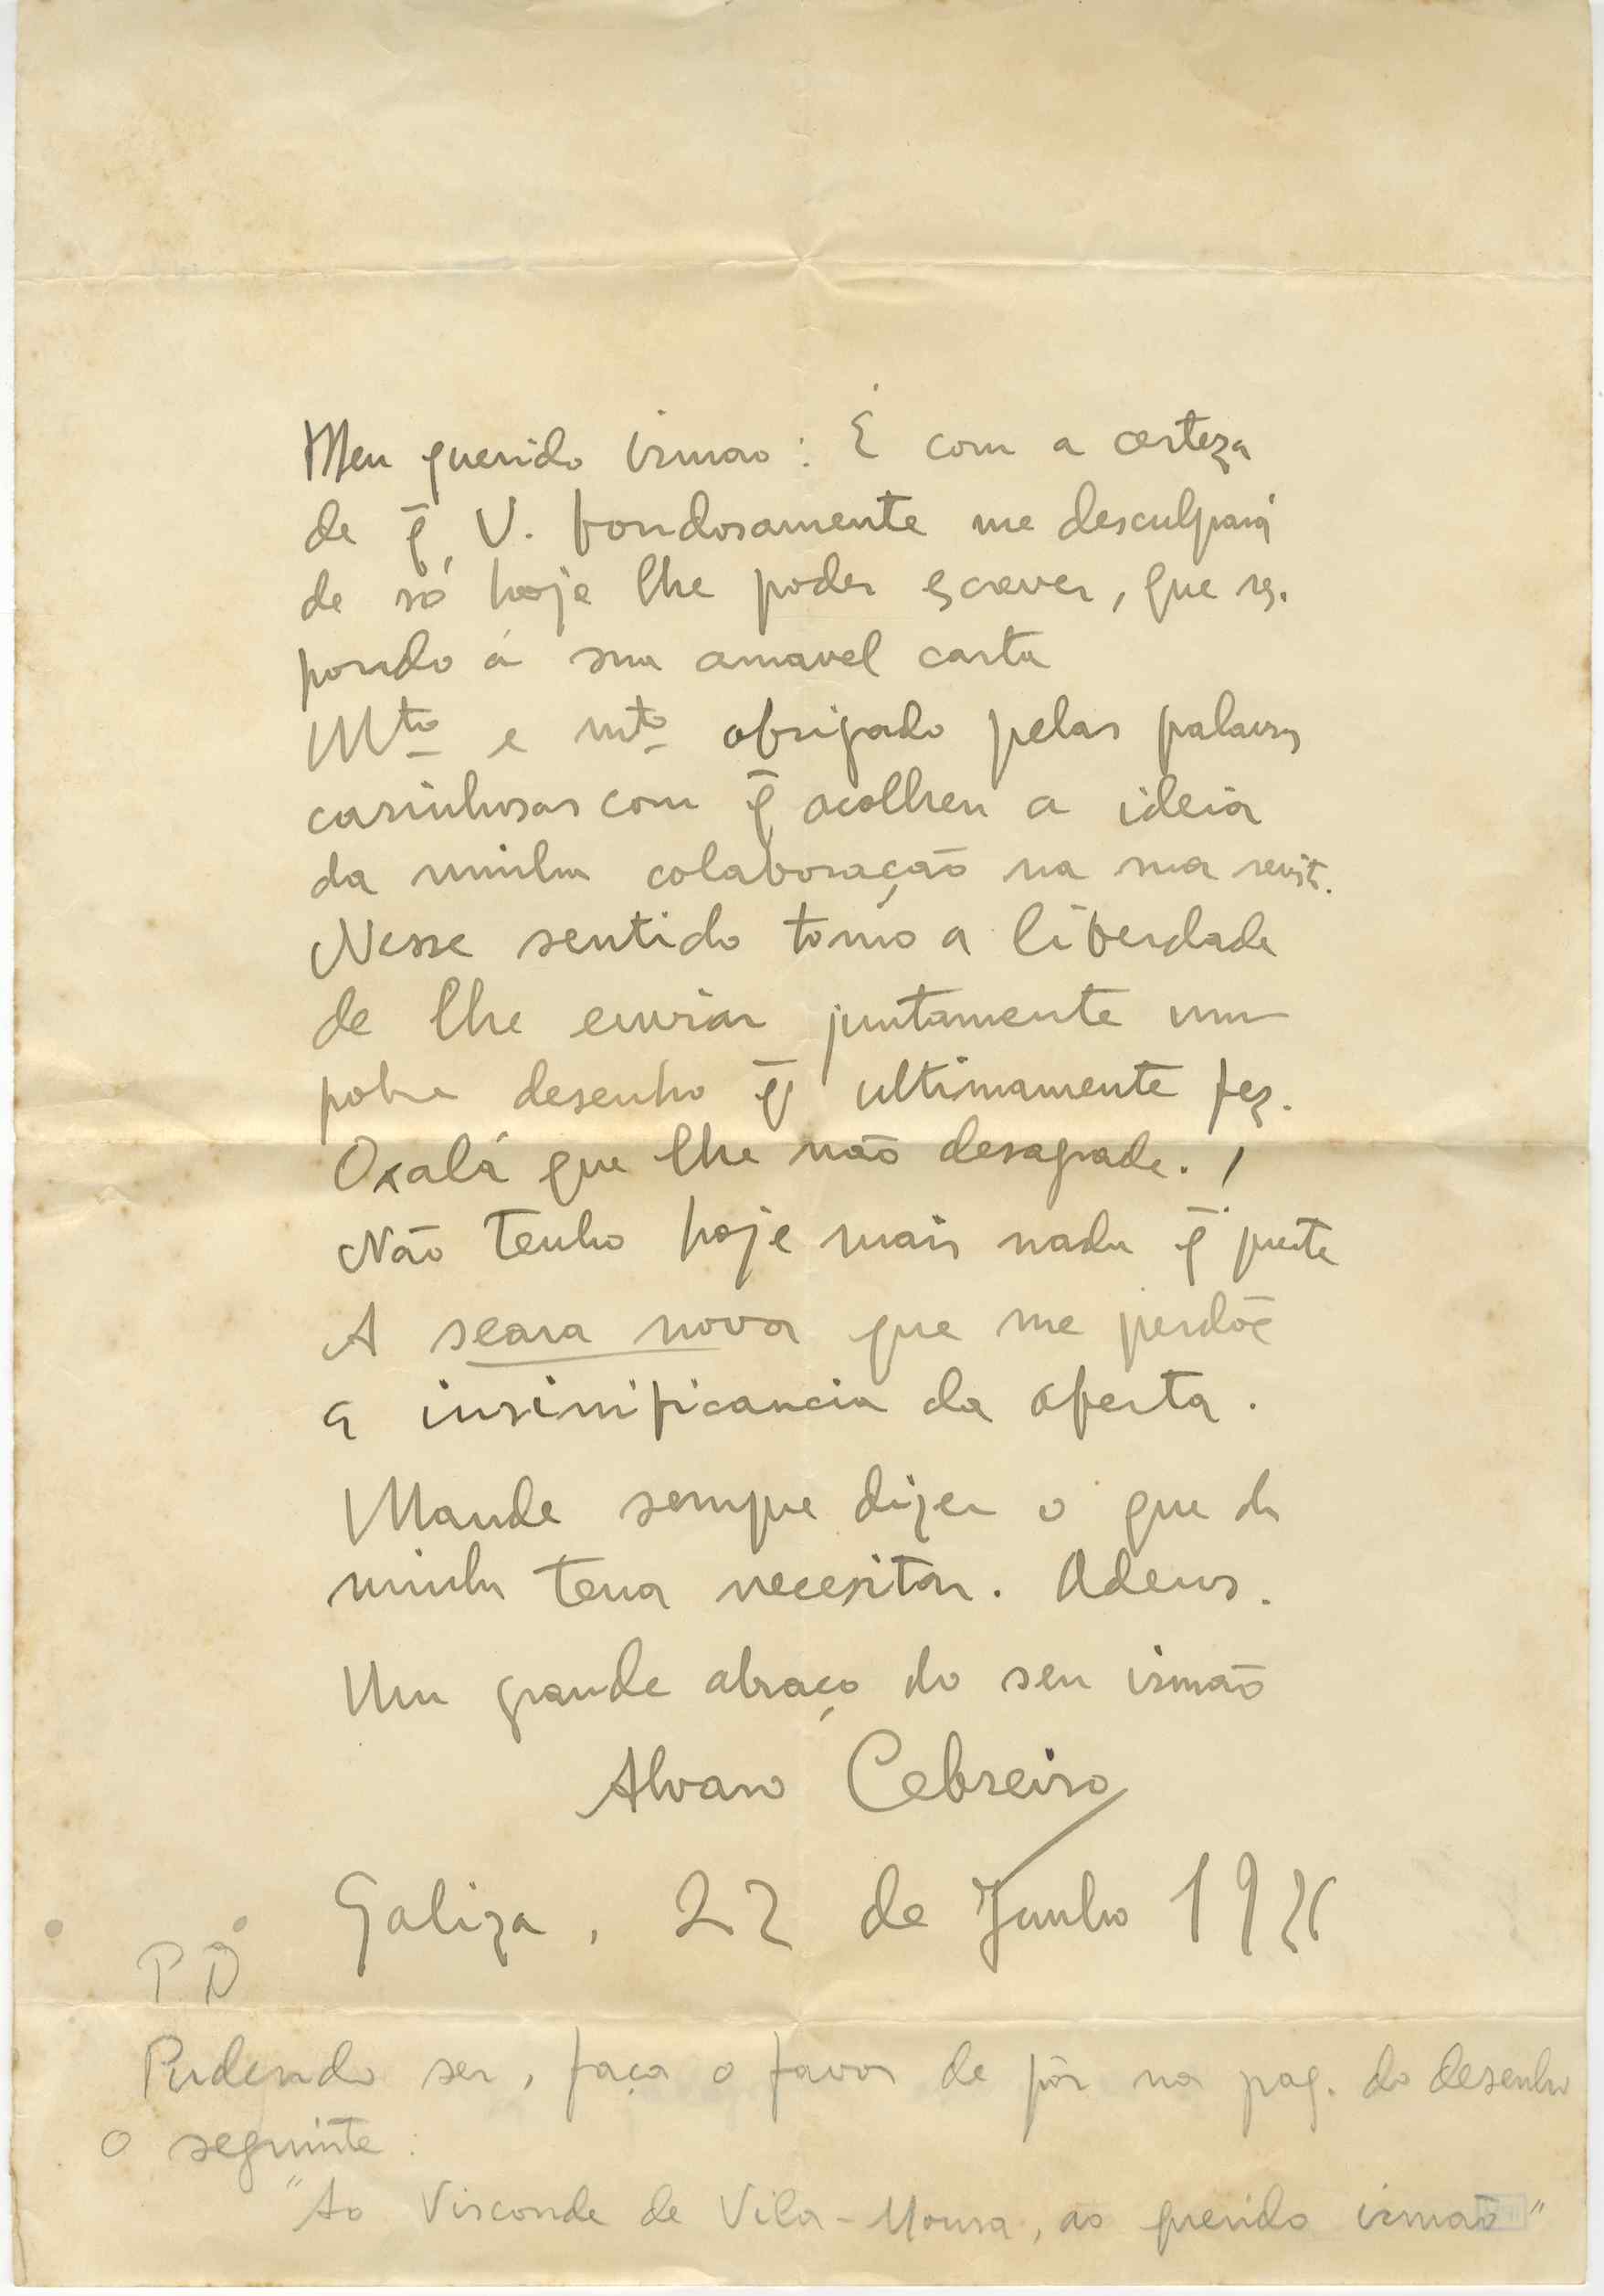 Meu querido irmao: É com a certeza
de q̄ V. bondosamente me desculpará
de só hoje lhe poder escrever, que res-
pondo á sua amavel carta
Mto e mto obrigado pelas palavras
carinhosas com q̄ acolheu a ideia
da minha colaboração na sua revist.
Nesse sentido tomo a liberdade
de lhe enviar juntamente um
pobre desenho q̄ ultimamente fez.
Oxalá que lhe não desagrade.
Não tenho hoje mais nada q̄ preste
A seara nova que me perdõe
a insinificancia da oferta.
Mande sempre dizer o que da
minha terra necesitar. Adeus.
Um grande abraço do seu irmão
Alvaro Cebreiro
Galiza, 22 de Junho 19
PD
Pudendo ser, faça o favor de pôr na pag. do desenho
o seguinte:
"Ao Visconde de Vila-Moura, ao querido irmaõ"